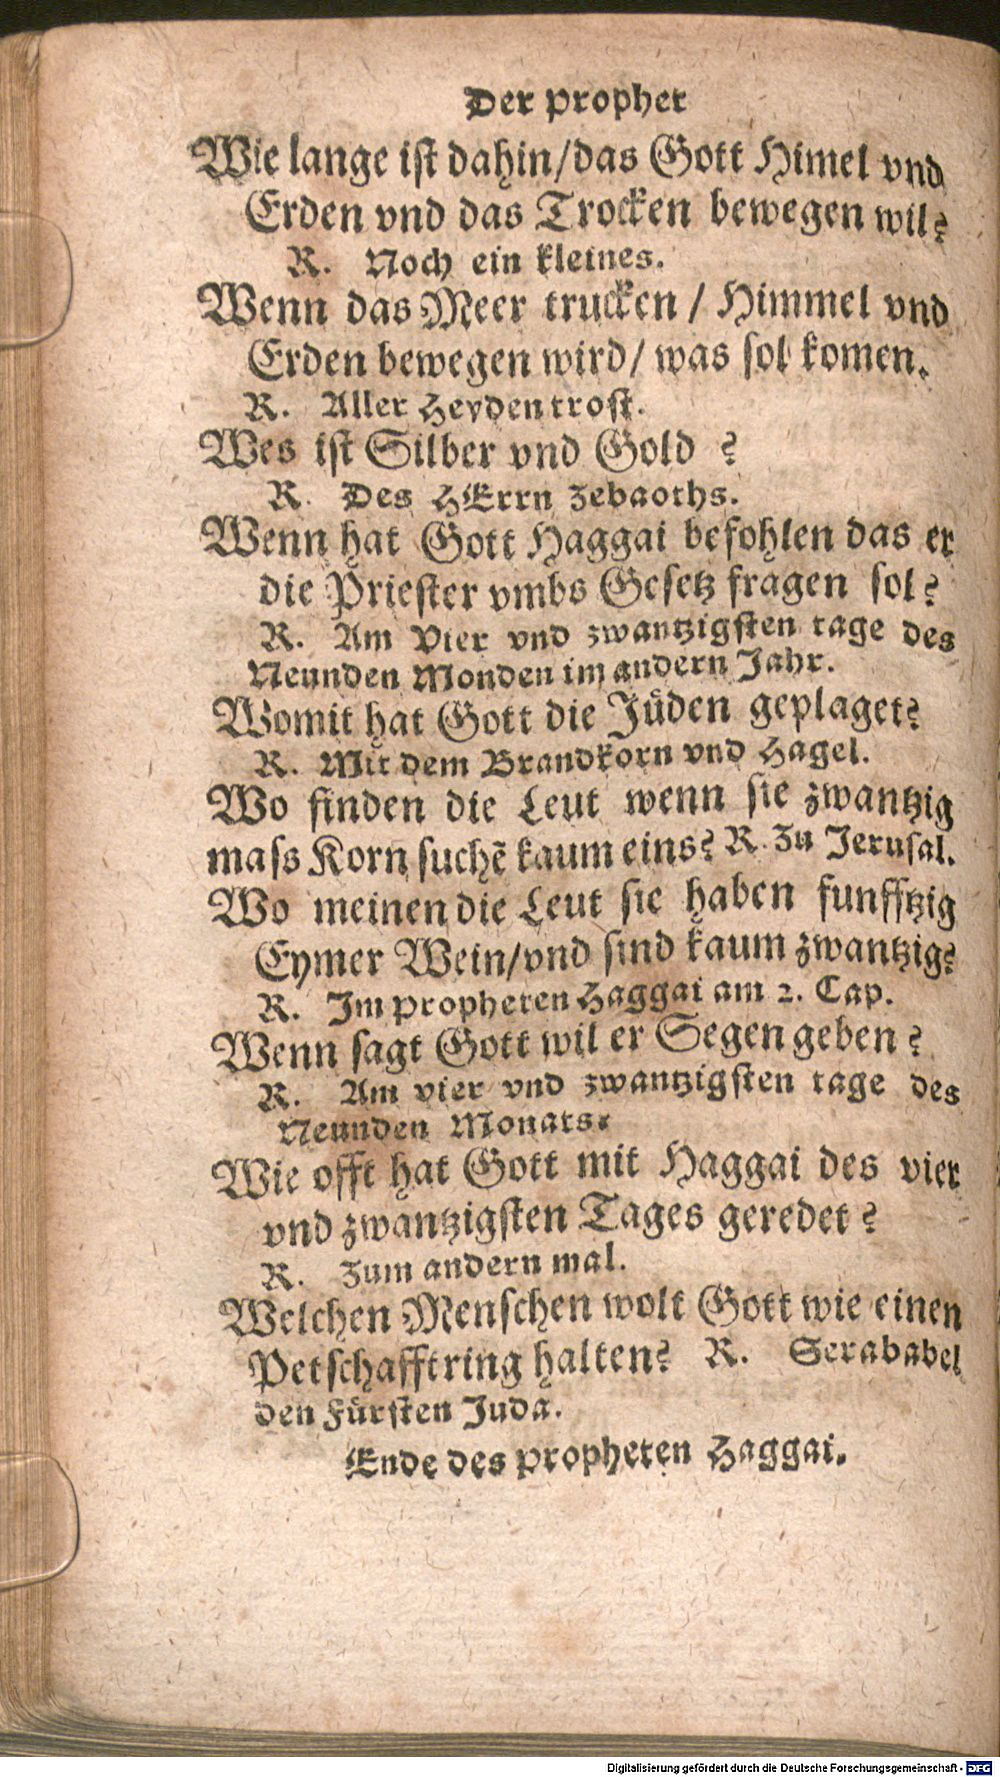 Der Prophet
Wie lange ist dahin/das Gott Himel vnd
Erden vnd das Trocken bewegen wil?
R. Noch ein kleines.
Wenn das Meer trucken / Himmel vnd
Erden bewegen wird/ was sol komen.
R. Aller Heyden trost.
Wes ist Silber vnd Gold ?
R. Des HErrn Zebaoths.
Wenn hat Gott Haggai befohlen das er
die Priester vmbs Gesetz fragen sol?
R. Am Vier vnd zwantzigsten tage des
Neunden Monden im andern Jahr.
Womit hat Gott die Jüden geplaget?
R. Mit dem Brandkorn vnd Hagel.
Wo finden die Leut wenn sie zwantzig
mass Korn suchē kaum eins? R. Zu Jerusal.
Wo meinen die Leut sie haben funfftzig
Eymer Wein/vnd sind kaum zwantzig?
R. Im Propheten Haggai am 2. Cap.
Wenn sagt Gott wil er Segen geben ?
R. Am vier vnd zwantzigsten tage des
Neunden Monats.
Wie offt hat Gott mit Haggai des vier
vnd zwantzigsten Tages geredet ?
R. Zum andern mal.
Welchen Menschen wolt Gott wie einen
Petschafftring halten? R. Serababel
den Fürsten Juda.
Ende des Propheten Haggai.
Digitalisierung gefördert durch die Deutsche Forschungsgemeinschaft - DFG